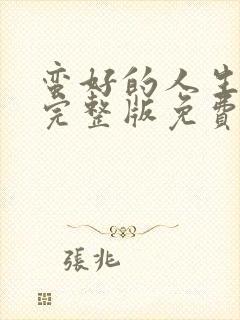 蛮好的人生
完整版免費
張兆